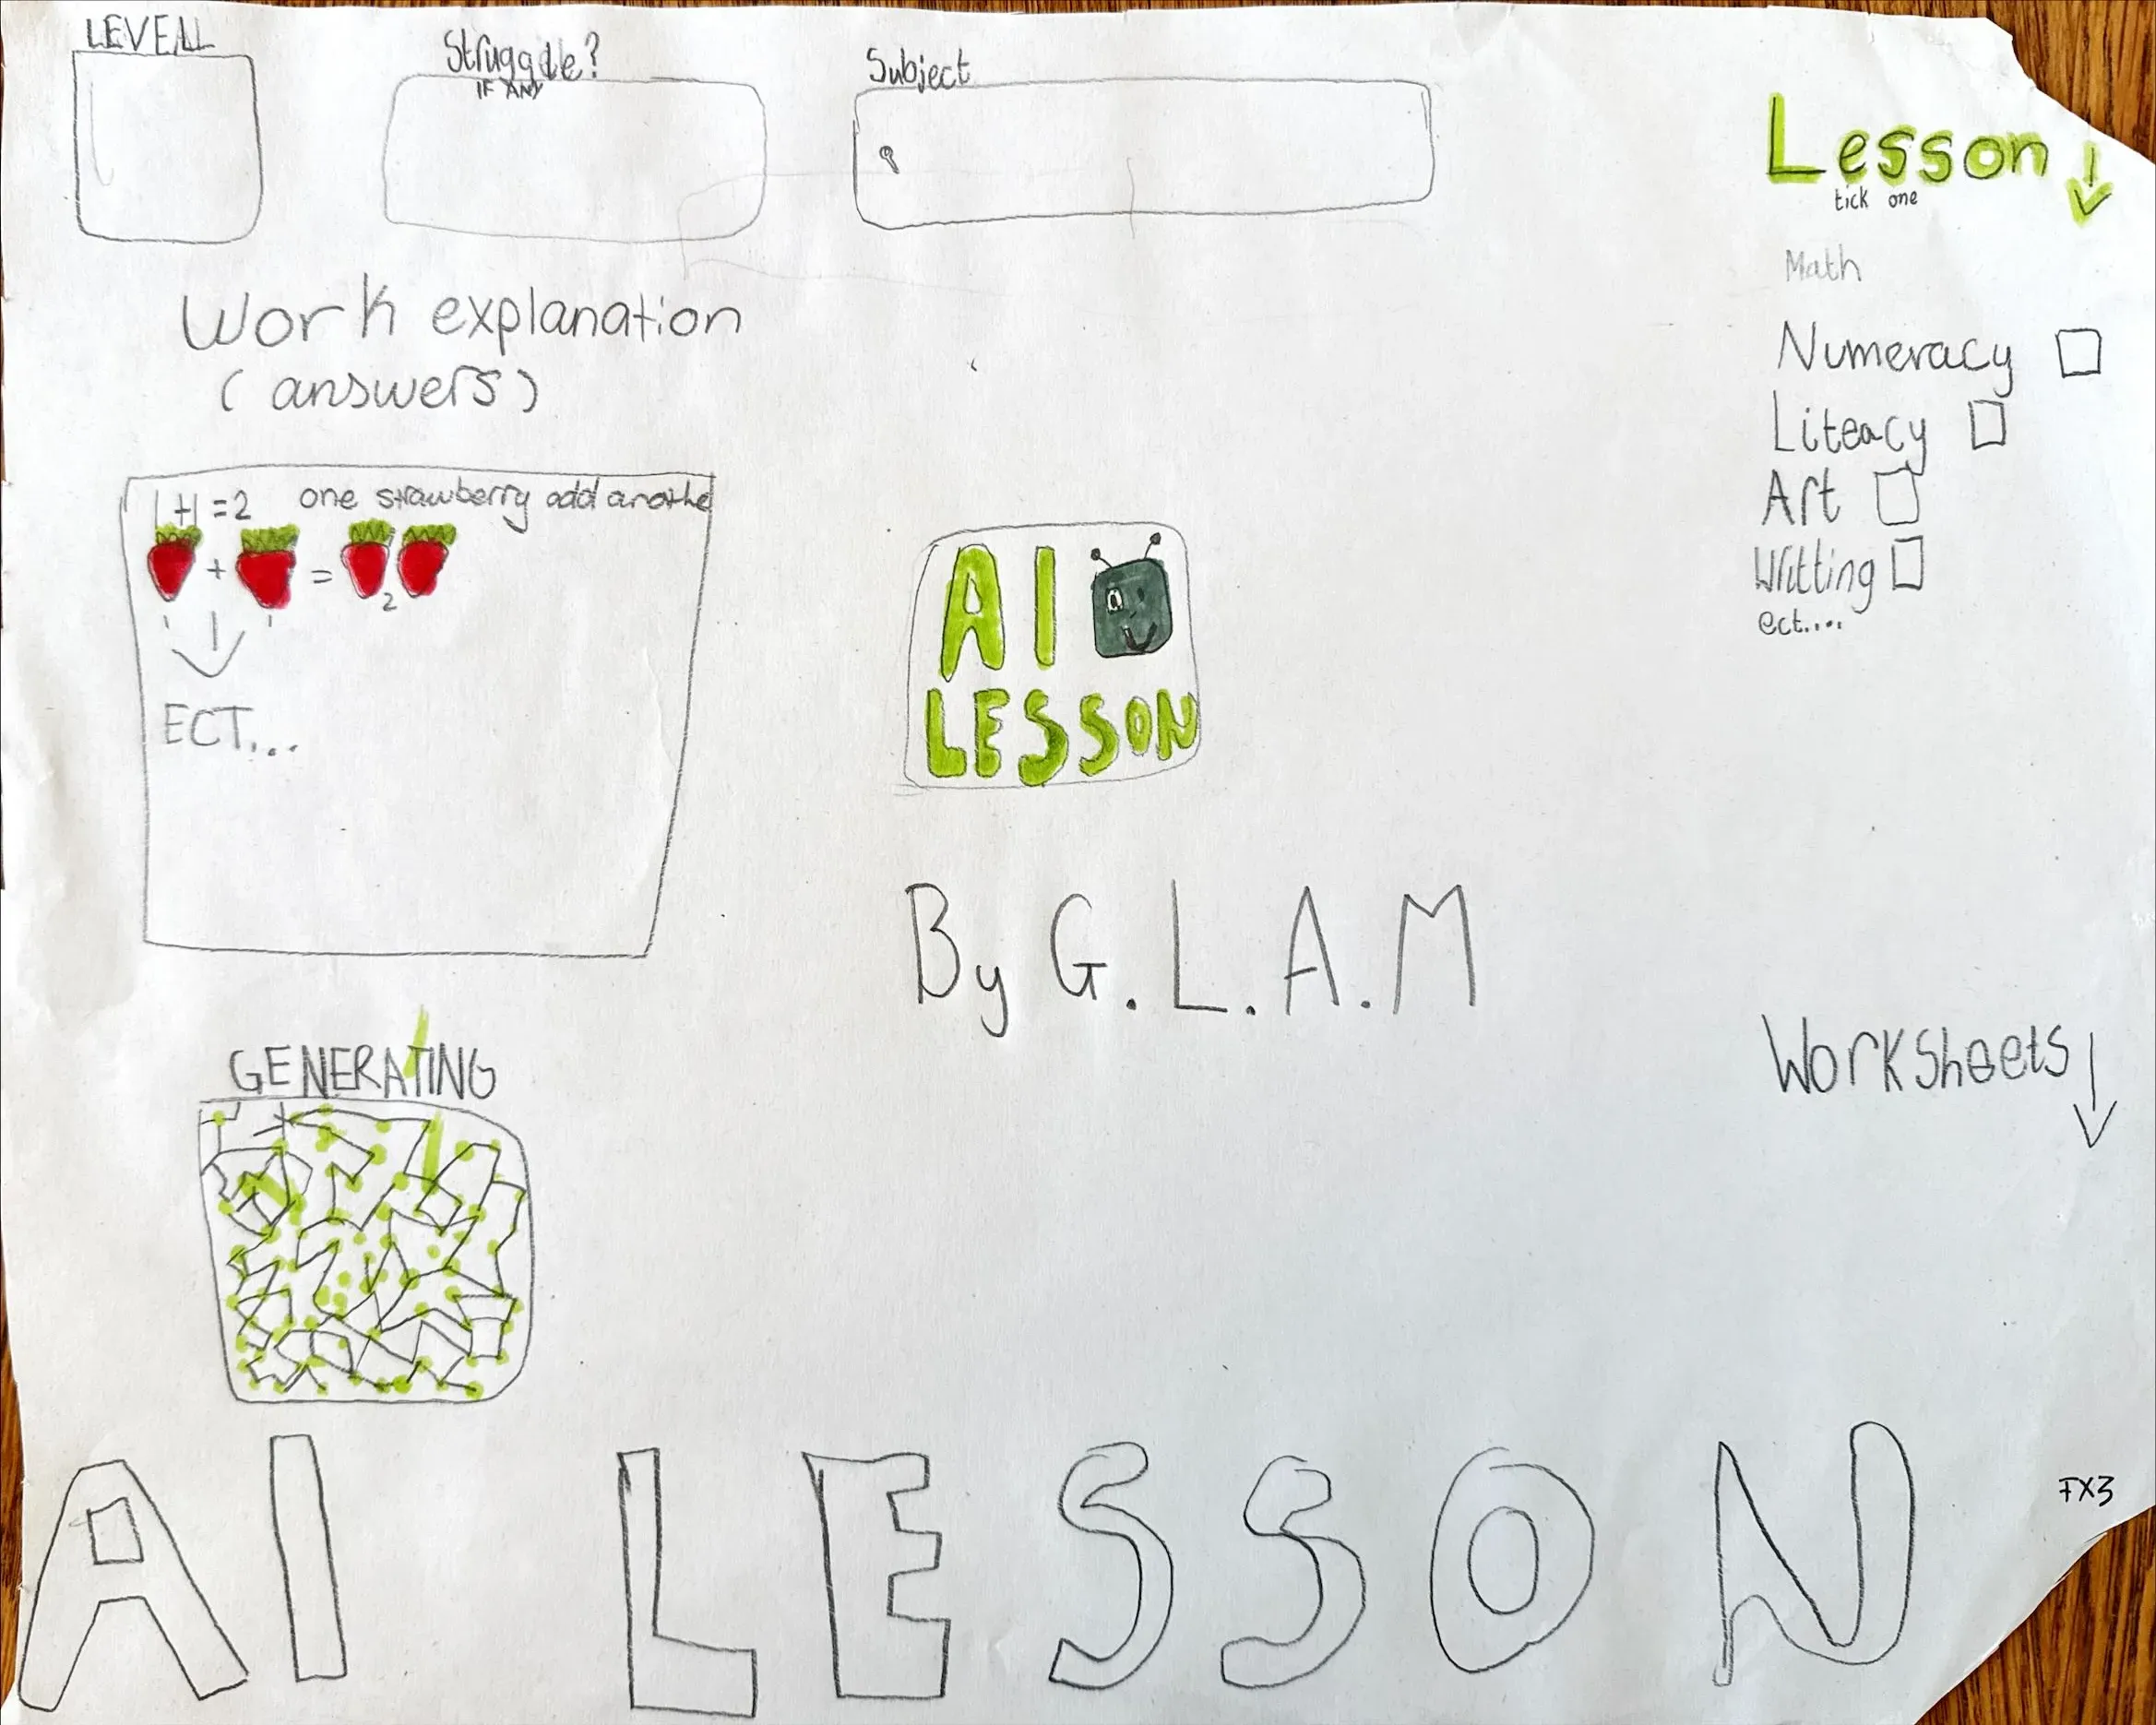 LEVELL
Struggle?
IF ANY
Subject
Lesson ↓
tick one
Math
Numeracy
Literacy
Art
Writting
ect....
Work explanation
(answers)
1+1=2 one strawberry add anothe
+ =
2
1 1
ECT...
AI
LESSON
By G.L.A.M
GENERATING
Worksheets ↓
AI LESSON
FX3